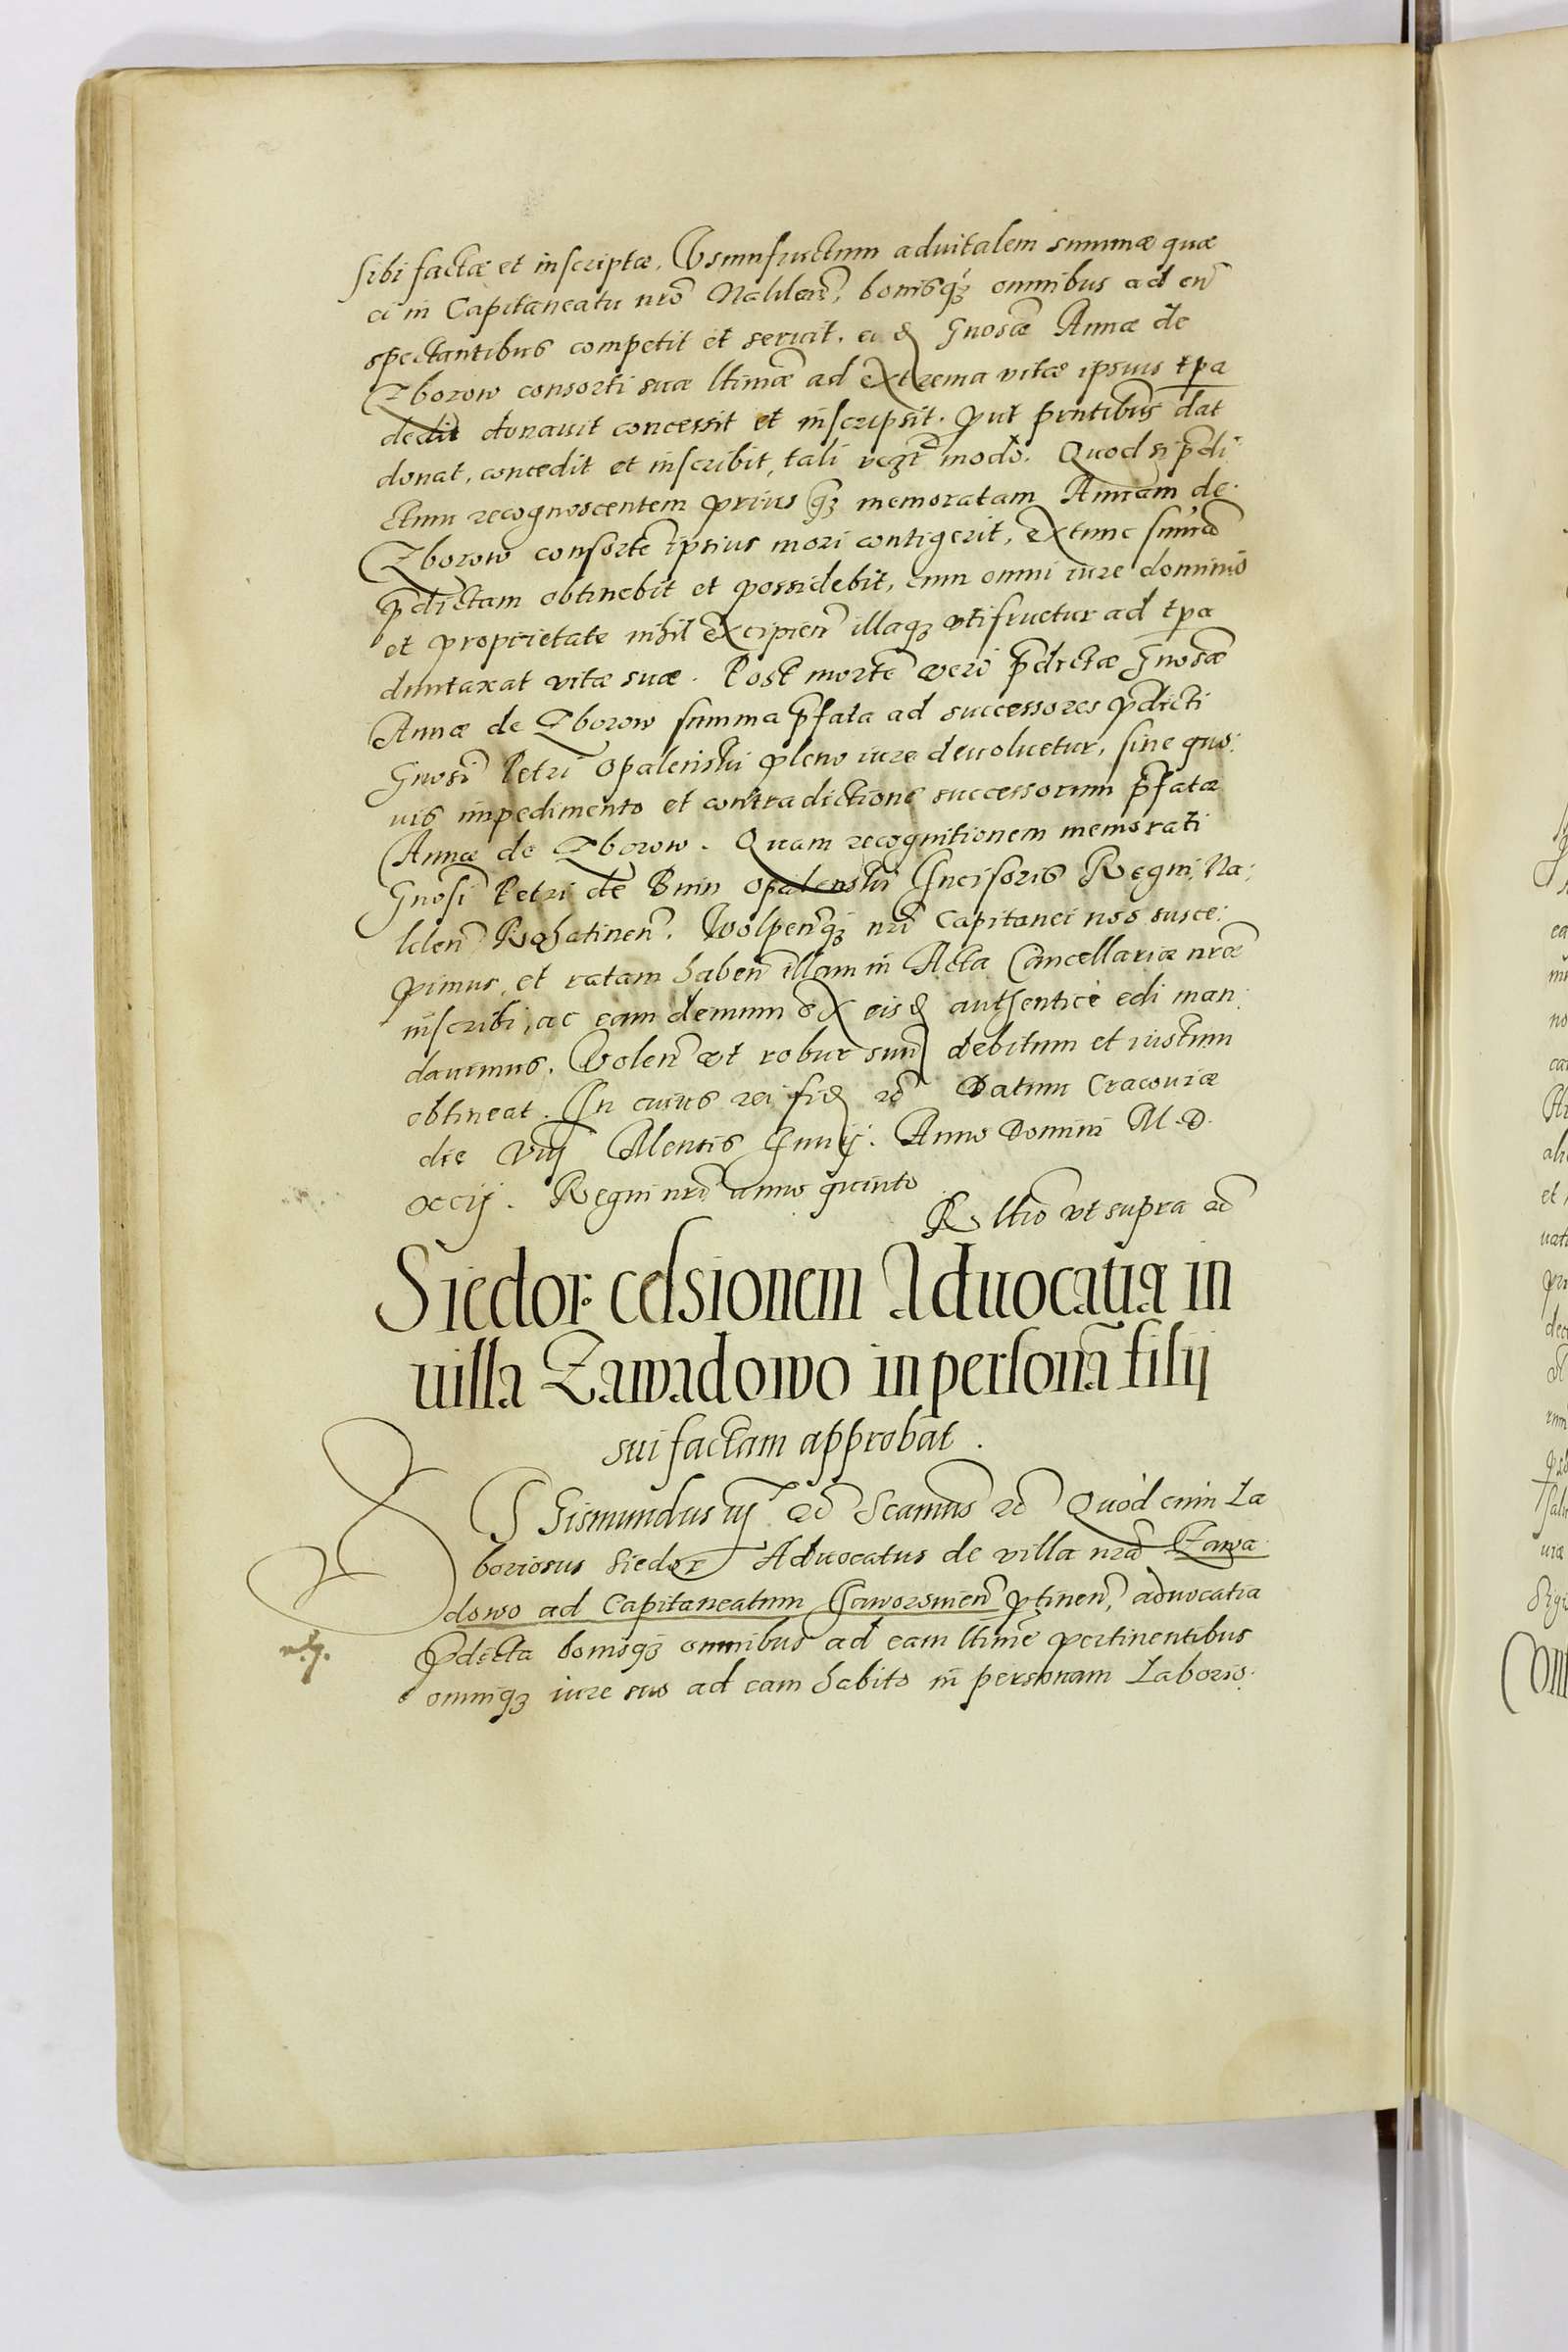 sibi factæ et inscriptæ. Vsumfructum aduitalem summæ quæ
ei in Capitaneatu nrõ Naklen̄, bonisqȝ omnibus ad eū
spectantibus competit et seruit. eiꝺ Gnosæ Annæ de
Zborow consorti suæ ltimæ ad extrema vitæ ipsius tpa
dedit donauit concessit et inscripsit. Put pntibus dat
donat, concedit et inscribit, tali modo. Quod si p̄di
ctum recognoscentem prius qȝ memoratam Annam de
Zborow consortē ipsius mori contigerit, extunc summā
p̄dictam obtinebit et possidebit, cum omni iure dominio
et proprietate nihil excipien̄ illaqȝ vtifruetur ad tpa
duntaxat vitæ suæ. Post mortē verò p̄dictæ Gnosæ
Annæ de Zborow summa p̄fata ad successores p̄dicti
Gnosi Petri Opalenski pleno iure deuoluetur, sine quo:
uis impedimento et contradictione successorum p̄fatæ
Annæ de Zborow. Quam recognitionem memorati
Gnosi Petri de Bnin Opalenski Incisoris Regni, Na:
klen̄ Rohatinen̄. Wolpen̄qȝ nrī Capitanei nos susce:
pimus, et ratam haben̄ illam in Acta Cancellariæ nræ
inscribi, ac eam demum ex eisꝺ authenticè edi man:
dauimus. Volen̄ vt robur suū debitum et iustum
obtineat. In cuius rei fidē &c̄ Datum Cracouiæ
die Viij Mensis Junij. Anno Domini M.D.
xcij. Regni nrī anno quinto
Rltio vt supra &c̄
Siedor cessionem Aduocatiæ in
villa Zawadowo in personā filij
sui factam approbat.
SGismundus iij &c̄ Scamus &c̄ Quod cum La
boriosus Siedor Aduocatus de villa nrā Zawa
dowo ad Capitaneatum Jaworouien̄ ptinen̄, aduocatia
Pdicta bonisqȝ omnibus ad eam ltimè pertinentibus
omniqȝ iure suo ad eam habito in personam Laborio: